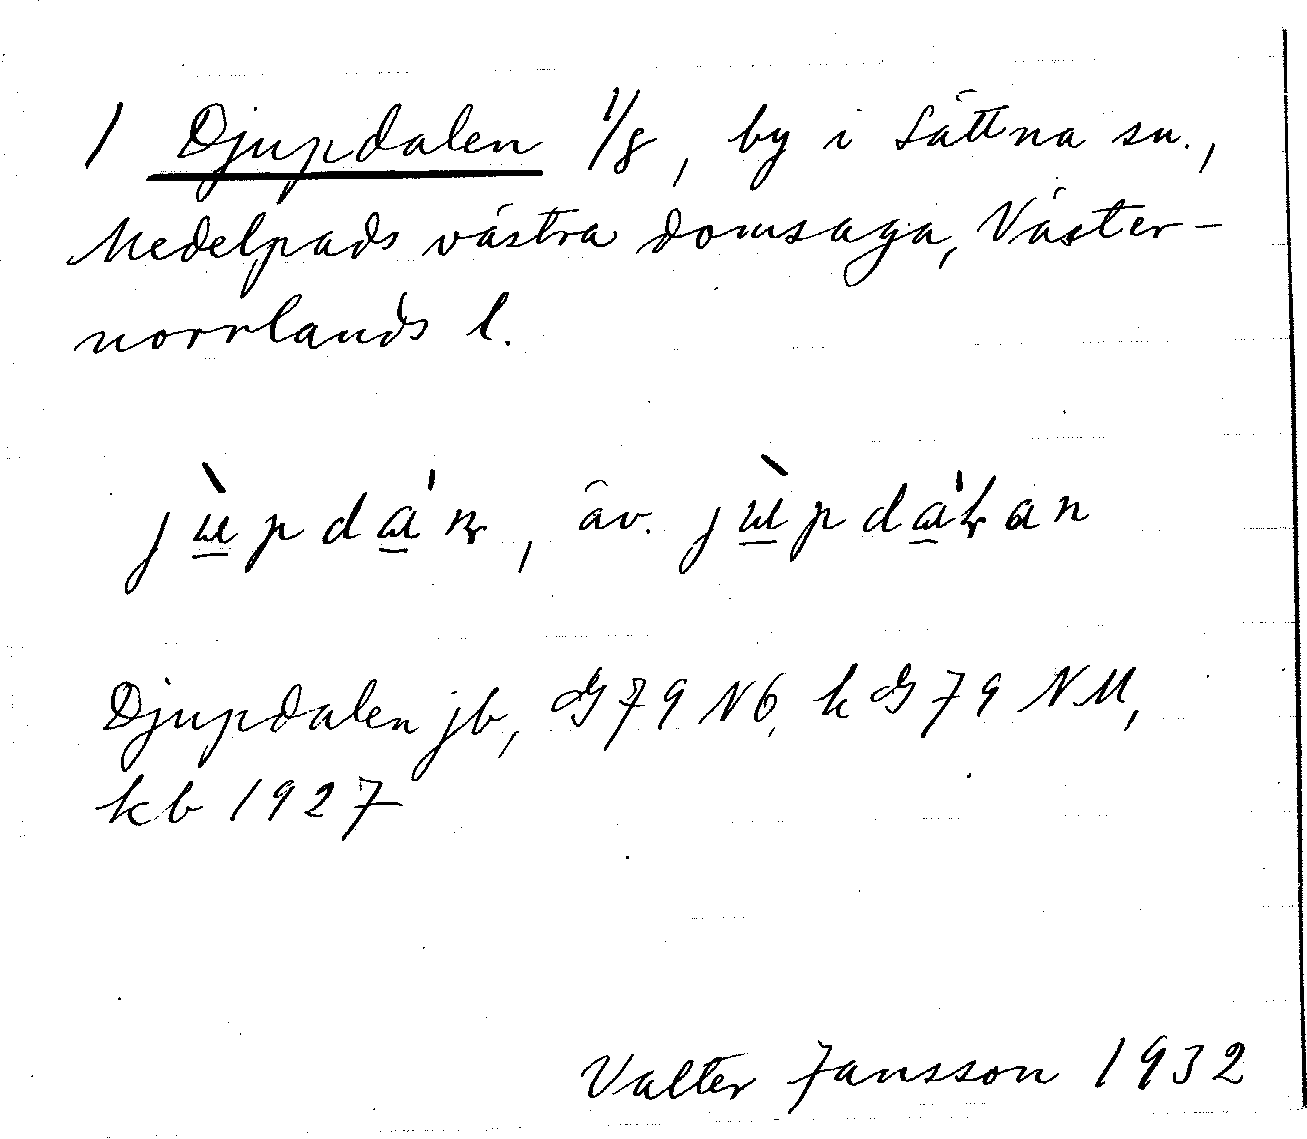 1 Djupdalen 1/8, by i Sättna sn.,
Medelpads västra domsaga, Väster-
norrlands l.
jùpdá'ɳ, äv. jùpdá'ɽan
Djupdalen jb, G 79 N6, k G 79 NM,
kb 1927
Valter Jansson 1932